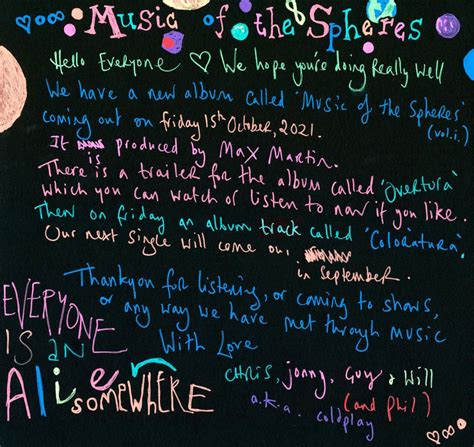 Music of the Spheres
Hello Everyone ♡ We hope you're doing Really Well
We have a new album called 'Music of the Spheres
(vol.i.)
coming out on friday 15th October, 2021.
It is produced by Max Martin.
There is a trailer for the album called 'Overtura'
which you can watch or listen to now if you like.
Then on friday an album track called 'Coloratura'.
Our next single will come out
in September.
Thankyou for listening, or coming to shows,
or any way we have met through music
With Love
EVERYONE
IS aN
Alien
somewHERE
CHRIS, jonny, Guy & Will
(and phil)
a.k.a. coldplay